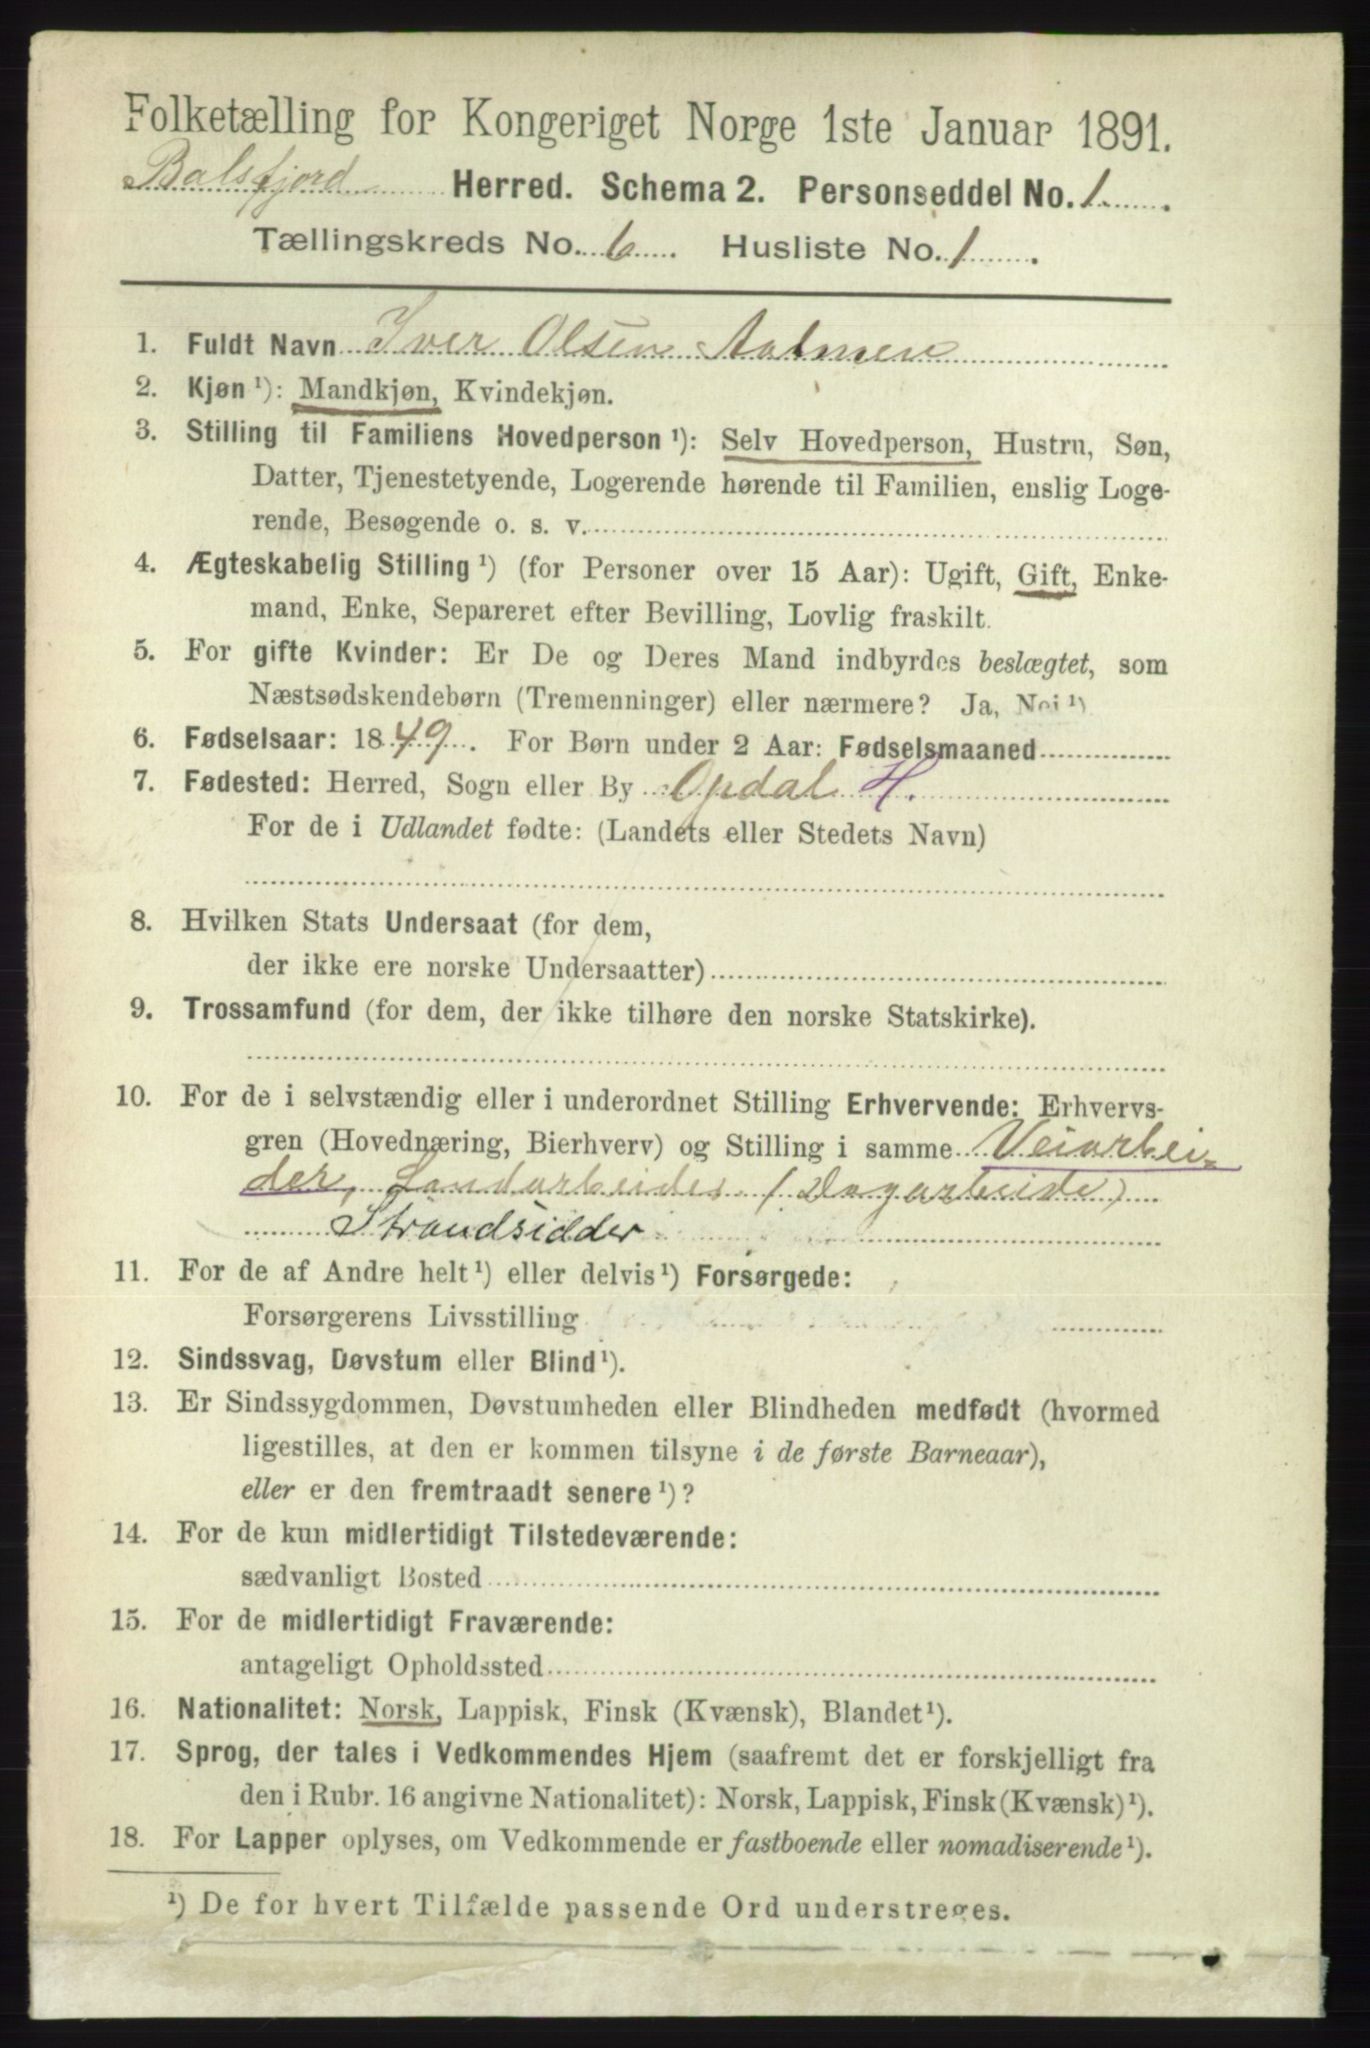 Folketælling for Kongeriget Norge 1ste Januar 1891.
Balsfjord Herred. Schema 2. Personseddel No. 1.
Tællingskreds No. 6. Husliste No. 1.
1. Fuldt Navn Iver Olsen Aalmen
2. Kjøn ¹): Mandkjøn, Kvindekjøn.
3. Stilling til Familiens Hovedperson ¹): Selv Hovedperson, Hustru, Søn,
Datter, Tjenestetyende, Logerende hørende til Familien, enslig Loge-
rende, Besøgende o. s. v.
4. Ægteskabelig Stilling ¹) (for Personer over 15 Aar): Ugift, Gift, Enke-
mand, Enke, Separeret efter Bevilling, Lovlig fraskilt.
5. For gifte Kvinder: Er De og Deres Mand indbyrdes beslægtet, som
Næstsødskendebørn (Tremenninger) eller nærmere? Ja, Nei ¹)
6. Fødselsaar: 1849. For Børn under 2 Aar: Fødselsmaaned
7. Fødested: Herred, Sogn eller By Opdal H.
For de i Udlandet fødte: (Landets eller Stedets Navn)
8. Hvilken Stats Undersaat (for dem,
der ikke ere norske Undersaatter)
9. Trossamfund (for dem, der ikke tilhøre den norske Statskirke).
10. For de i selvstændig eller i underordnet Stilling Erhvervende: Erhvervs-
gren (Hovednæring, Bierhverv) og Stilling i samme Veiarbei-
der, Landarbeider (Dagarbeide)
Strandsidder
11. For de af Andre helt ¹) eller delvis ¹) Forsørgede:
Forsørgerens Livsstilling
12. Sindssvag, Døvstum eller Blind ¹).
13. Er Sindssygdommen, Døvstumheden eller Blindheden medfødt (hvormed
ligestilles, at den er kommen tilsyne i de første Barneaar),
eller er den fremtraadt senere ¹)?
14. For de kun midlertidigt Tilstedeværende:
sædvanligt Bosted
15. For de midlertidigt Fraværende:
antageligt Opholdssted
16. Nationalitet: Norsk, Lappisk, Finsk (Kvænsk), Blandet ¹).
17. Sprog, der tales i Vedkommendes Hjem (saafremt det er forskjelligt fra
den i Rubr. 16 angivne Nationalitet): Norsk, Lappisk, Finsk (Kvænsk) ¹).
18. For Lapper oplyses, om Vedkommende er fastboende eller nomadiserende ¹).
¹) De for hvert Tilfælde passende Ord understreges.